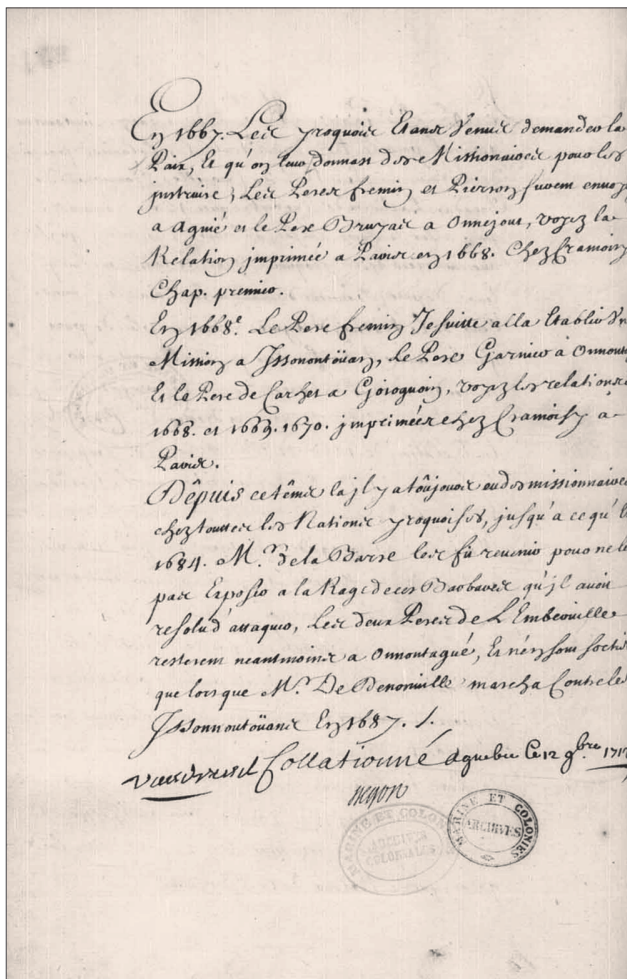 En 1667. Les yroquois Etans Venus demander la
Paix, Et qu'on leur donnast des Missionaires pour les
jnstruire, Les Peres fremin et Pierron furent envoy
a Agnié et le Pere Bruyas a Onnejout, voyez la
Relation jmprimée a Paris en 1668. Chez Cramoisy
Chap. premier.
En 1668e. Le Pere fremin Jesuitte alla Etablir Un
Mission a Issonontöüan, le Pere Garnier à Onnont
Et le Pere de Carheil a Goioguoin, voyez les relations
1668. et 1669. 1670. jmprimées chez Cramoisy à
Paris.
Dépuis ce têms la jl y a toûjours eu des missionnaires
chez toutes les Nations yroquoises, jusqu'a ce qu'
1684. Mr. de la Barre les fit revenir pour ne le
pas Exposer a la Rage de ces Barbares qu'jl avoit
resolu d'attaquer, Les deux Peres de L'Emberville
resterent neantmoins a Onnontagué, Et n'en sont sortis
que lors que Mr. De Denonville marcha Contre les
Issonnontöüans En 1687. /.
Vaudreuil Collationné a quebec Ce 12 9bre 171
Begon
MARINE ET COLONIES
ARCHIVES
MARINE ET COLONIES
ARCHIVES
COLONIALES